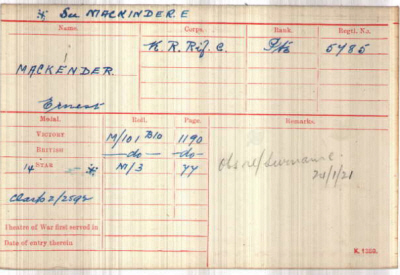 ※ See MACKINDER. E
Name. Corps. Rank. Regtl. No.
MACKENDER. K. R. Rif. C. Pte 5785
Ernest
Medal. Roll. Page. Remarks.
VICTORY M/101 B10 1190
BRITISH —do— —do—
14 STAR ※ M/3 77
Clasp 2/2592
Theatre of War first served in
Date of entry therein
K. 1380.